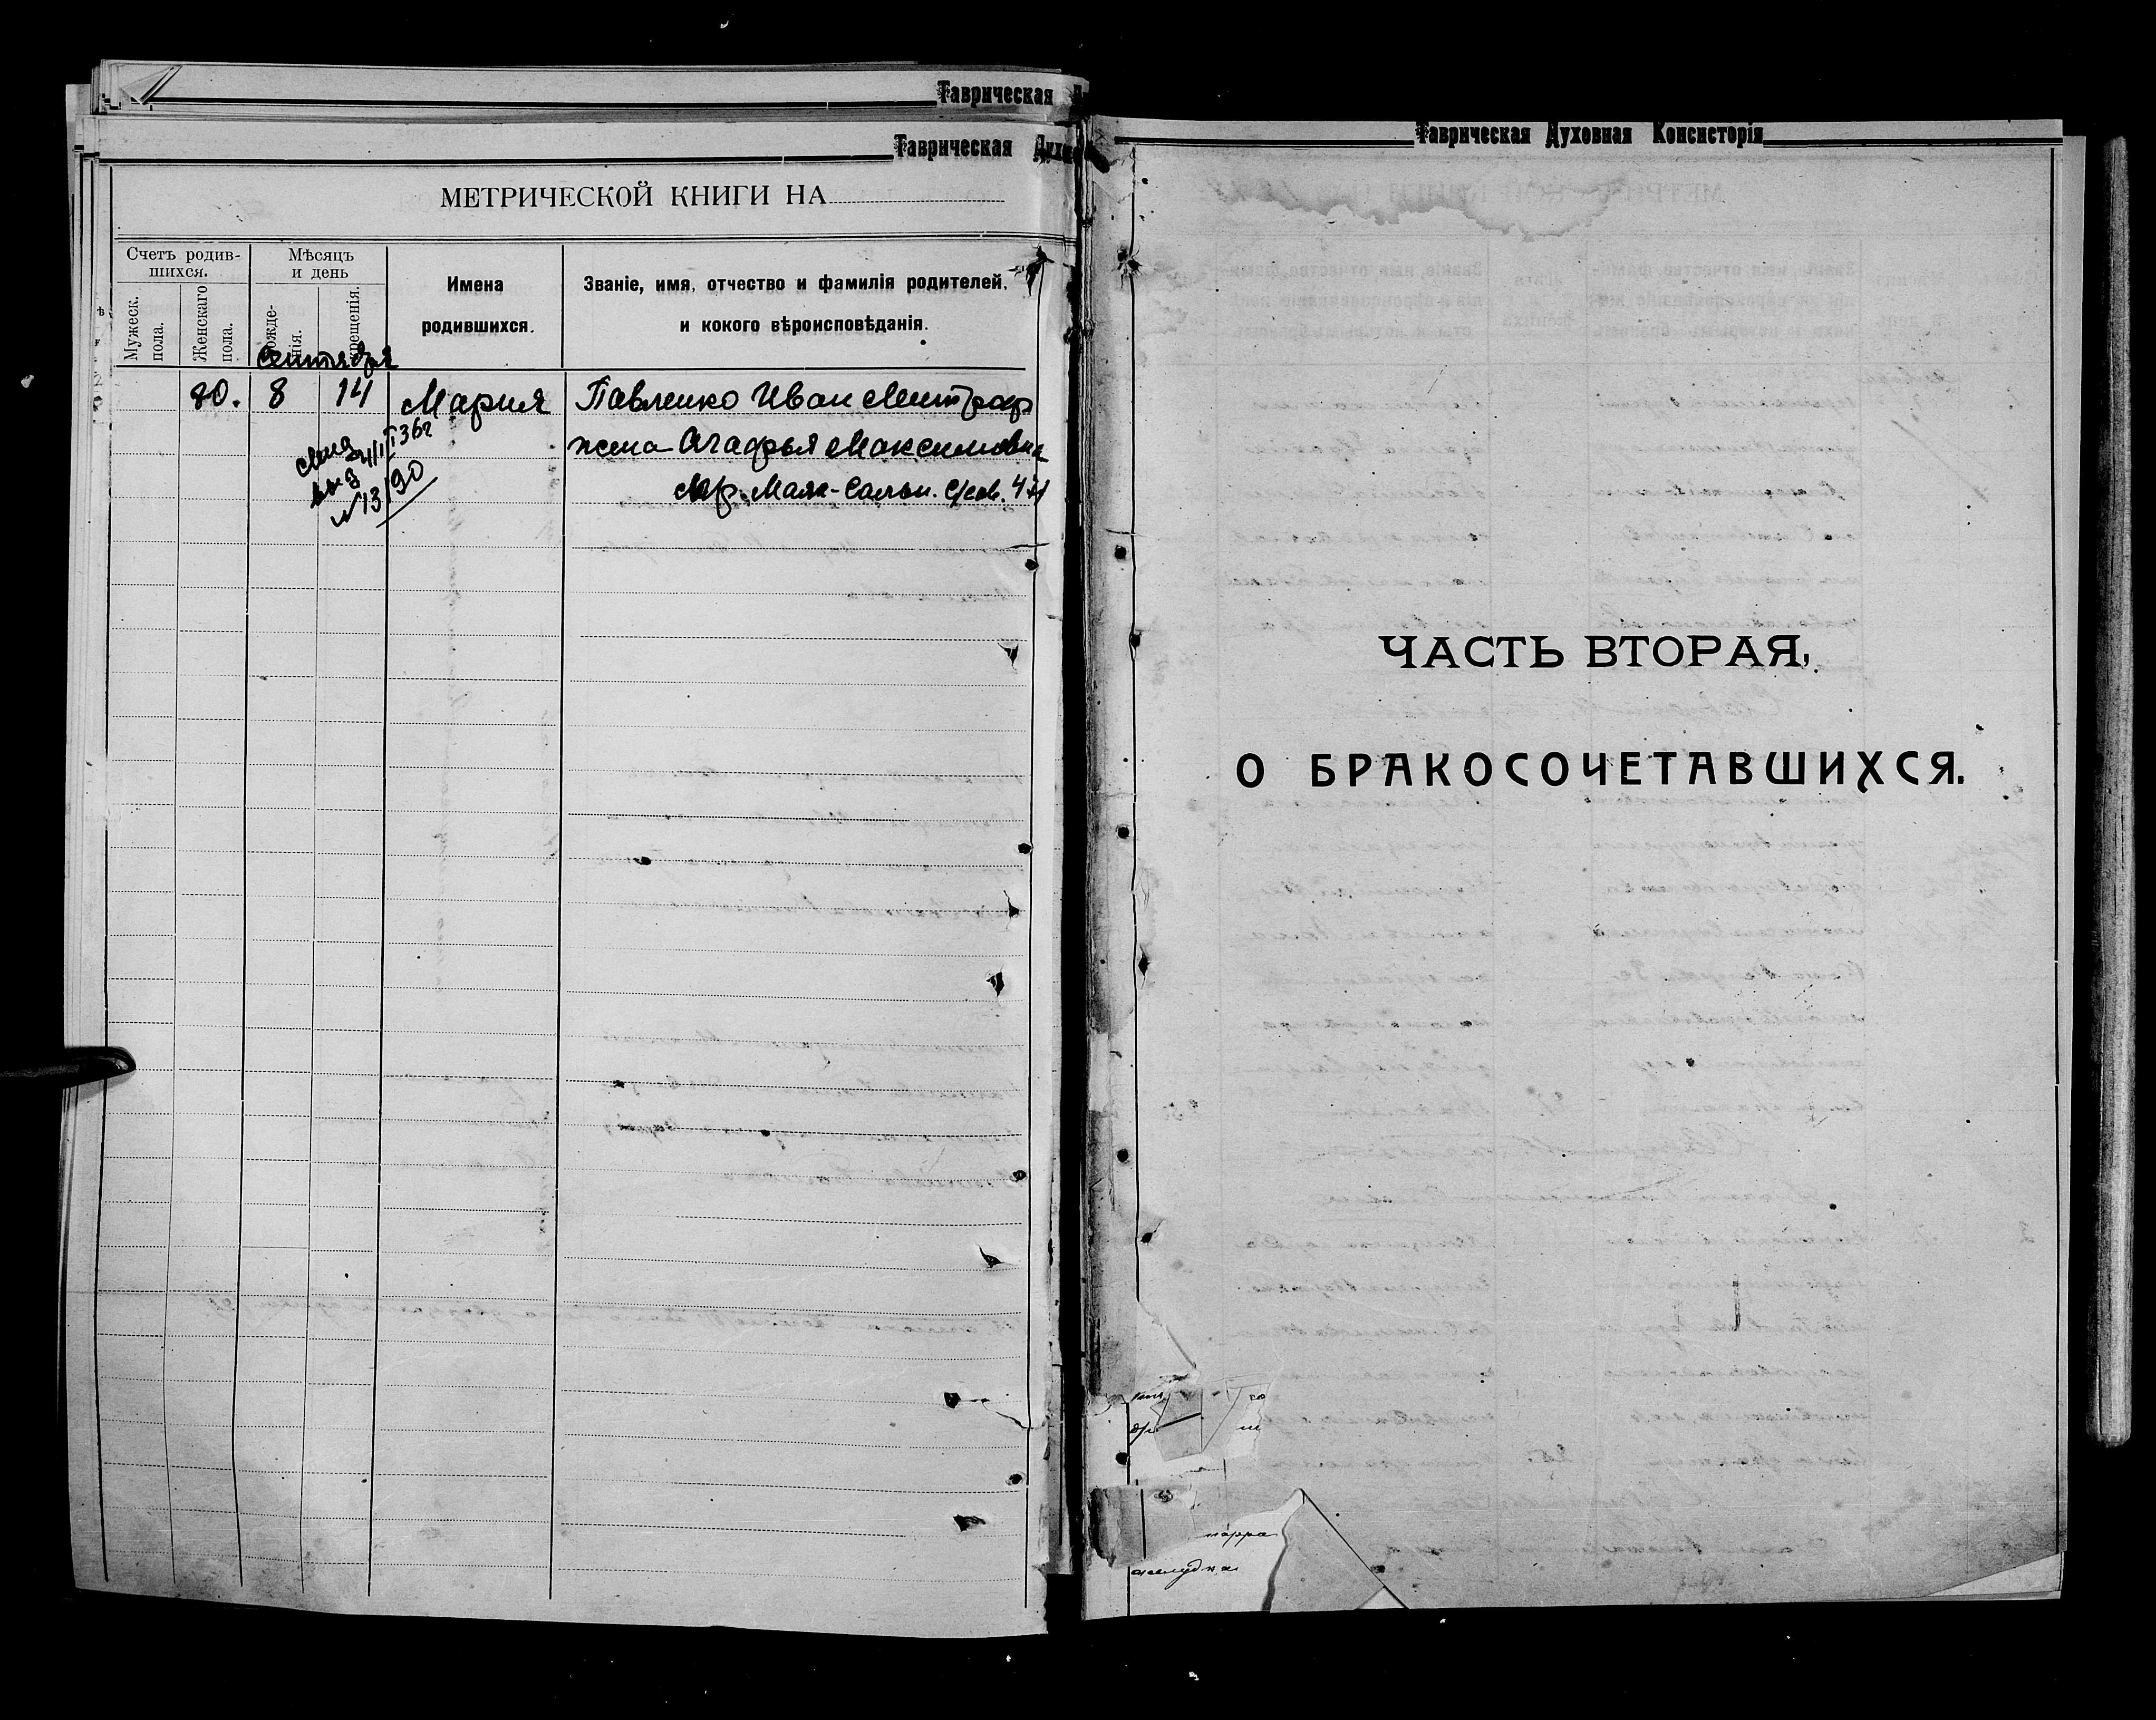 Таврическая
Таврическая Духо
МЕТРИЧЕСКОЙ КНИГИ НА
Счетъ родив-
шихся.
Мужеск.
пола.
Женскаго
пола.
Мѣсяцъ
и день
рожде-
нія.
крещенія.
Имена
родившихся.
Званіе, имя, отчество и фамилія родителей,
и кокого вѣроисповѣданія.
Сентября
80. 8 14 Мария Павленко Иван Митроф
жена Агафья Максимовна
Маяк-Салын.
выд 4/II 36г
№ 13/90
Таврическая Духовная Консисторія
ЧАСТЬ ВТОРАЯ,
О БРАКОСОЧЕТАВШИХСЯ.